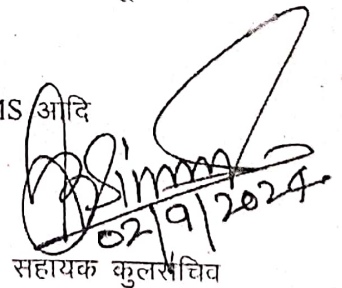 MS आदि
02/9/2024
सहायक कुलसचिव